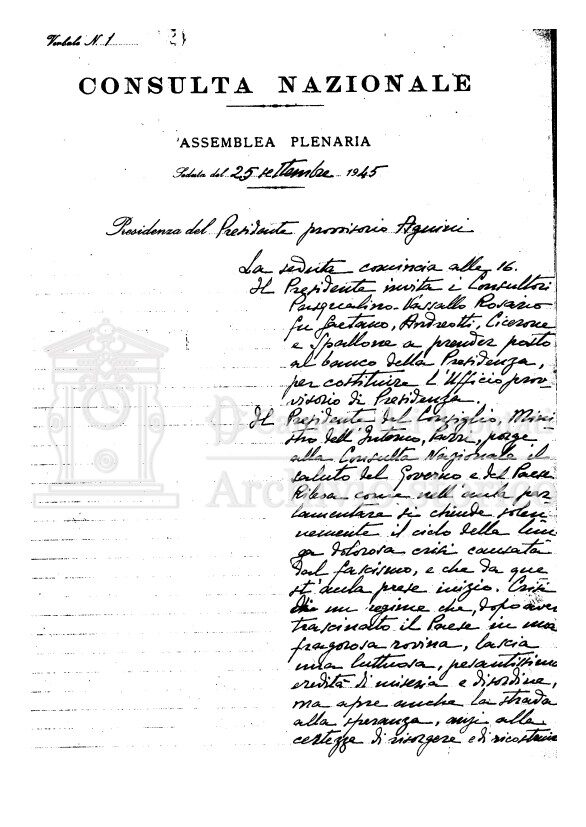 Verbale N. 1
CONSULTA NAZIONALE
ASSEMBLEA PLENARIA
Seduta del 25 settembre 1945
Presidenza del Presidente provvisorio Aguini
La seduta comincia alle 16.
Il Presidente invita i Consultori
Pasqualino-Vassallo Rosario
fu Gaetano, Andreotti, Cicerone
e Spallone a prender posto
al banco della Presidenza,
per costituire l'Ufficio prov
visorio di Presidenza.
Il Presidente del Consiglio, Mini
stro dell'Interno, Parri, porge
alla Consulta Nazionale il
saluto del Governo e del Paese
Rileva come nell'aula par
lamentare si chiude solen
nemente il ciclo della lun
ga dolorosa crisi causata
dal fascismo, e che da que
st'aula prese inizio. Crisi
di un regime che, dopo aver
trascinato il Paese in una
fragorosa rovina, lascia
una luttuosa, pesantissima
eredità di miseria e disordine,
ma apre anche la strada
alla speranza, anzi alla
certezza di risorgere e di ricostruire